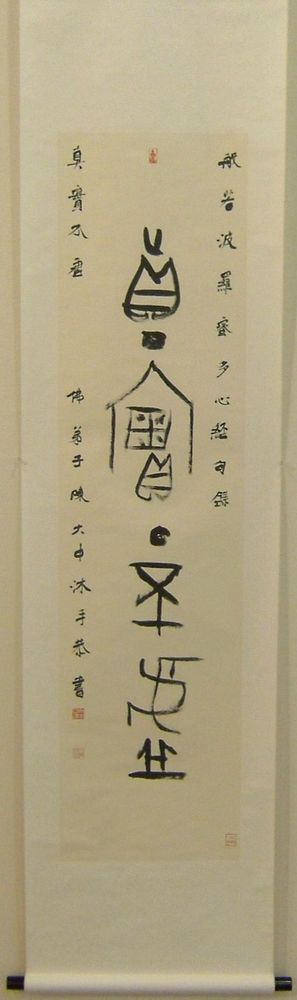 般若波羅蜜多心經句錄
真實不虛
真實不虛
佛弟子陳大中沐手恭書